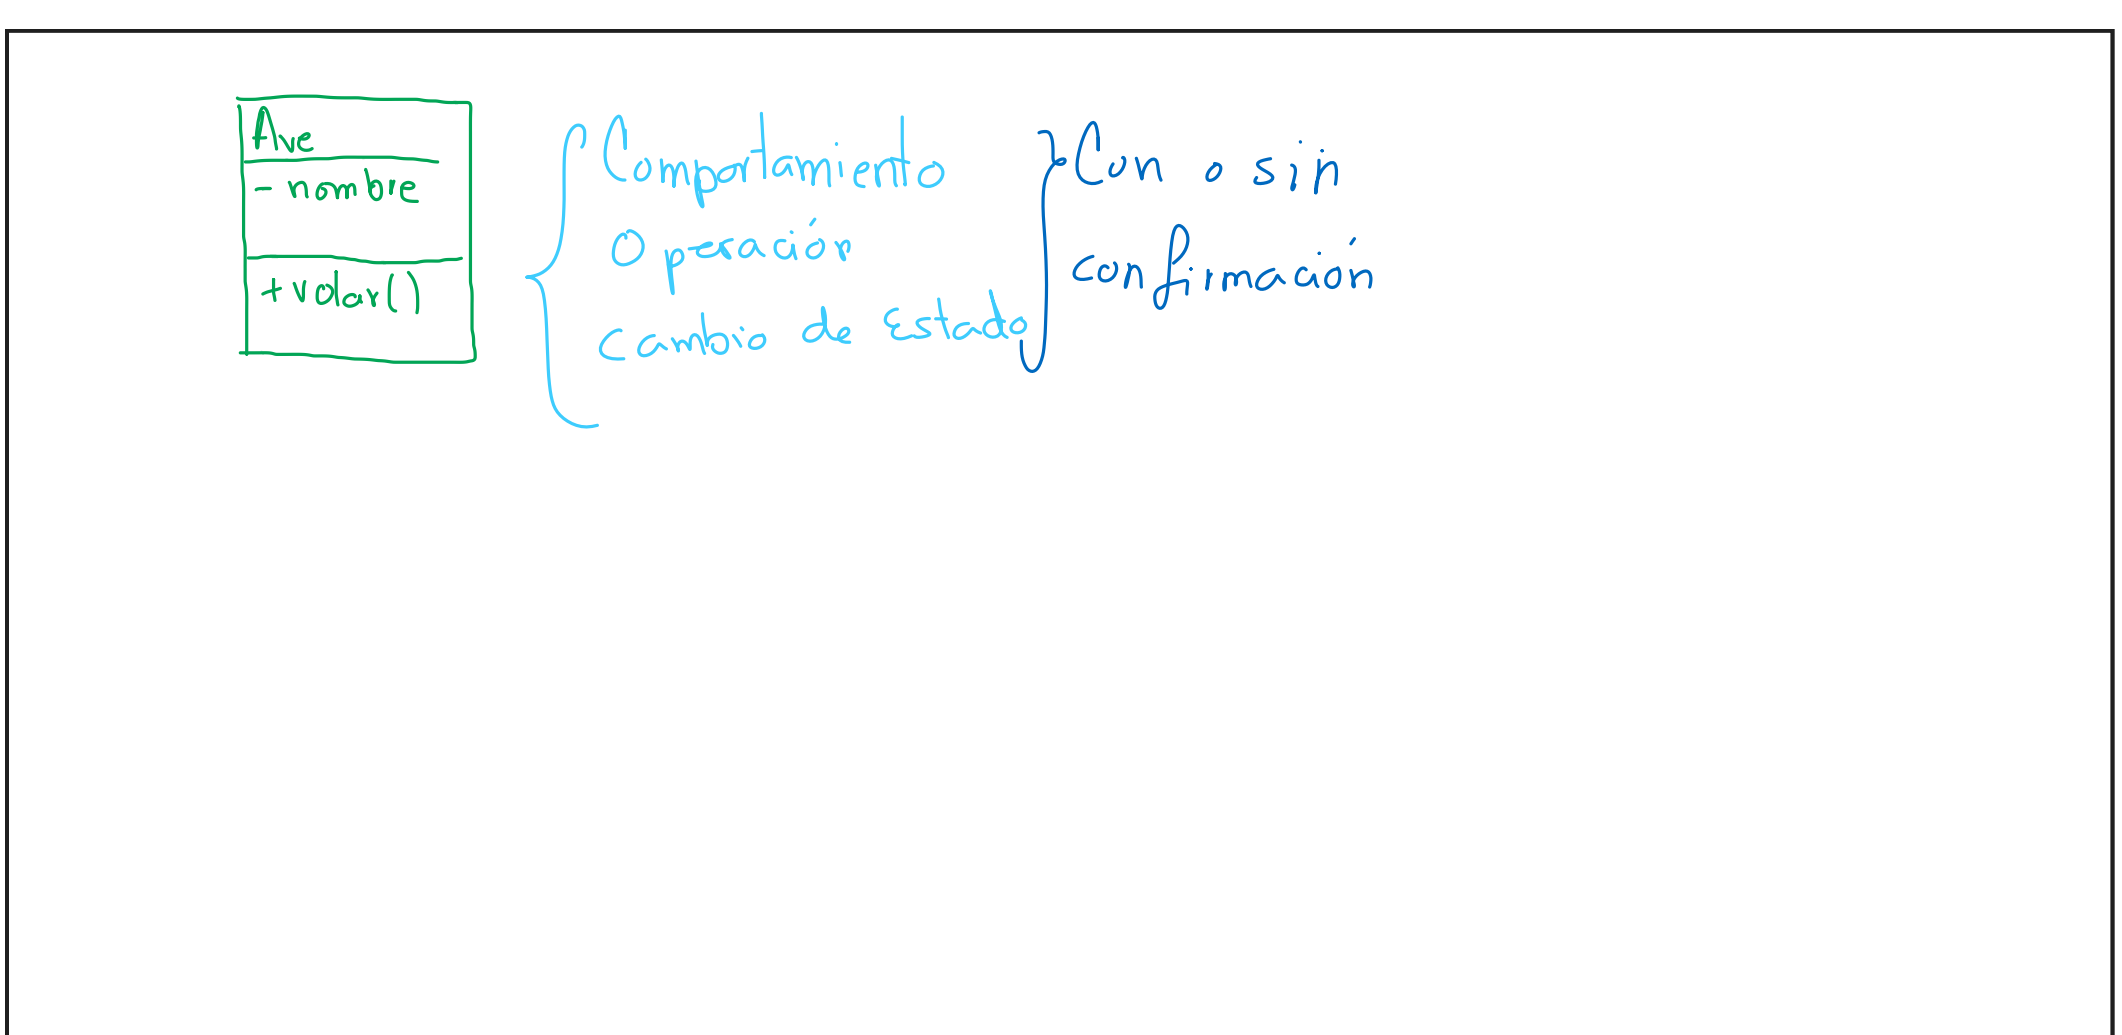 Ave
- nombre
+volar()
Comportamiento
Operación
Cambio de Estado
Con o sin
confirmación